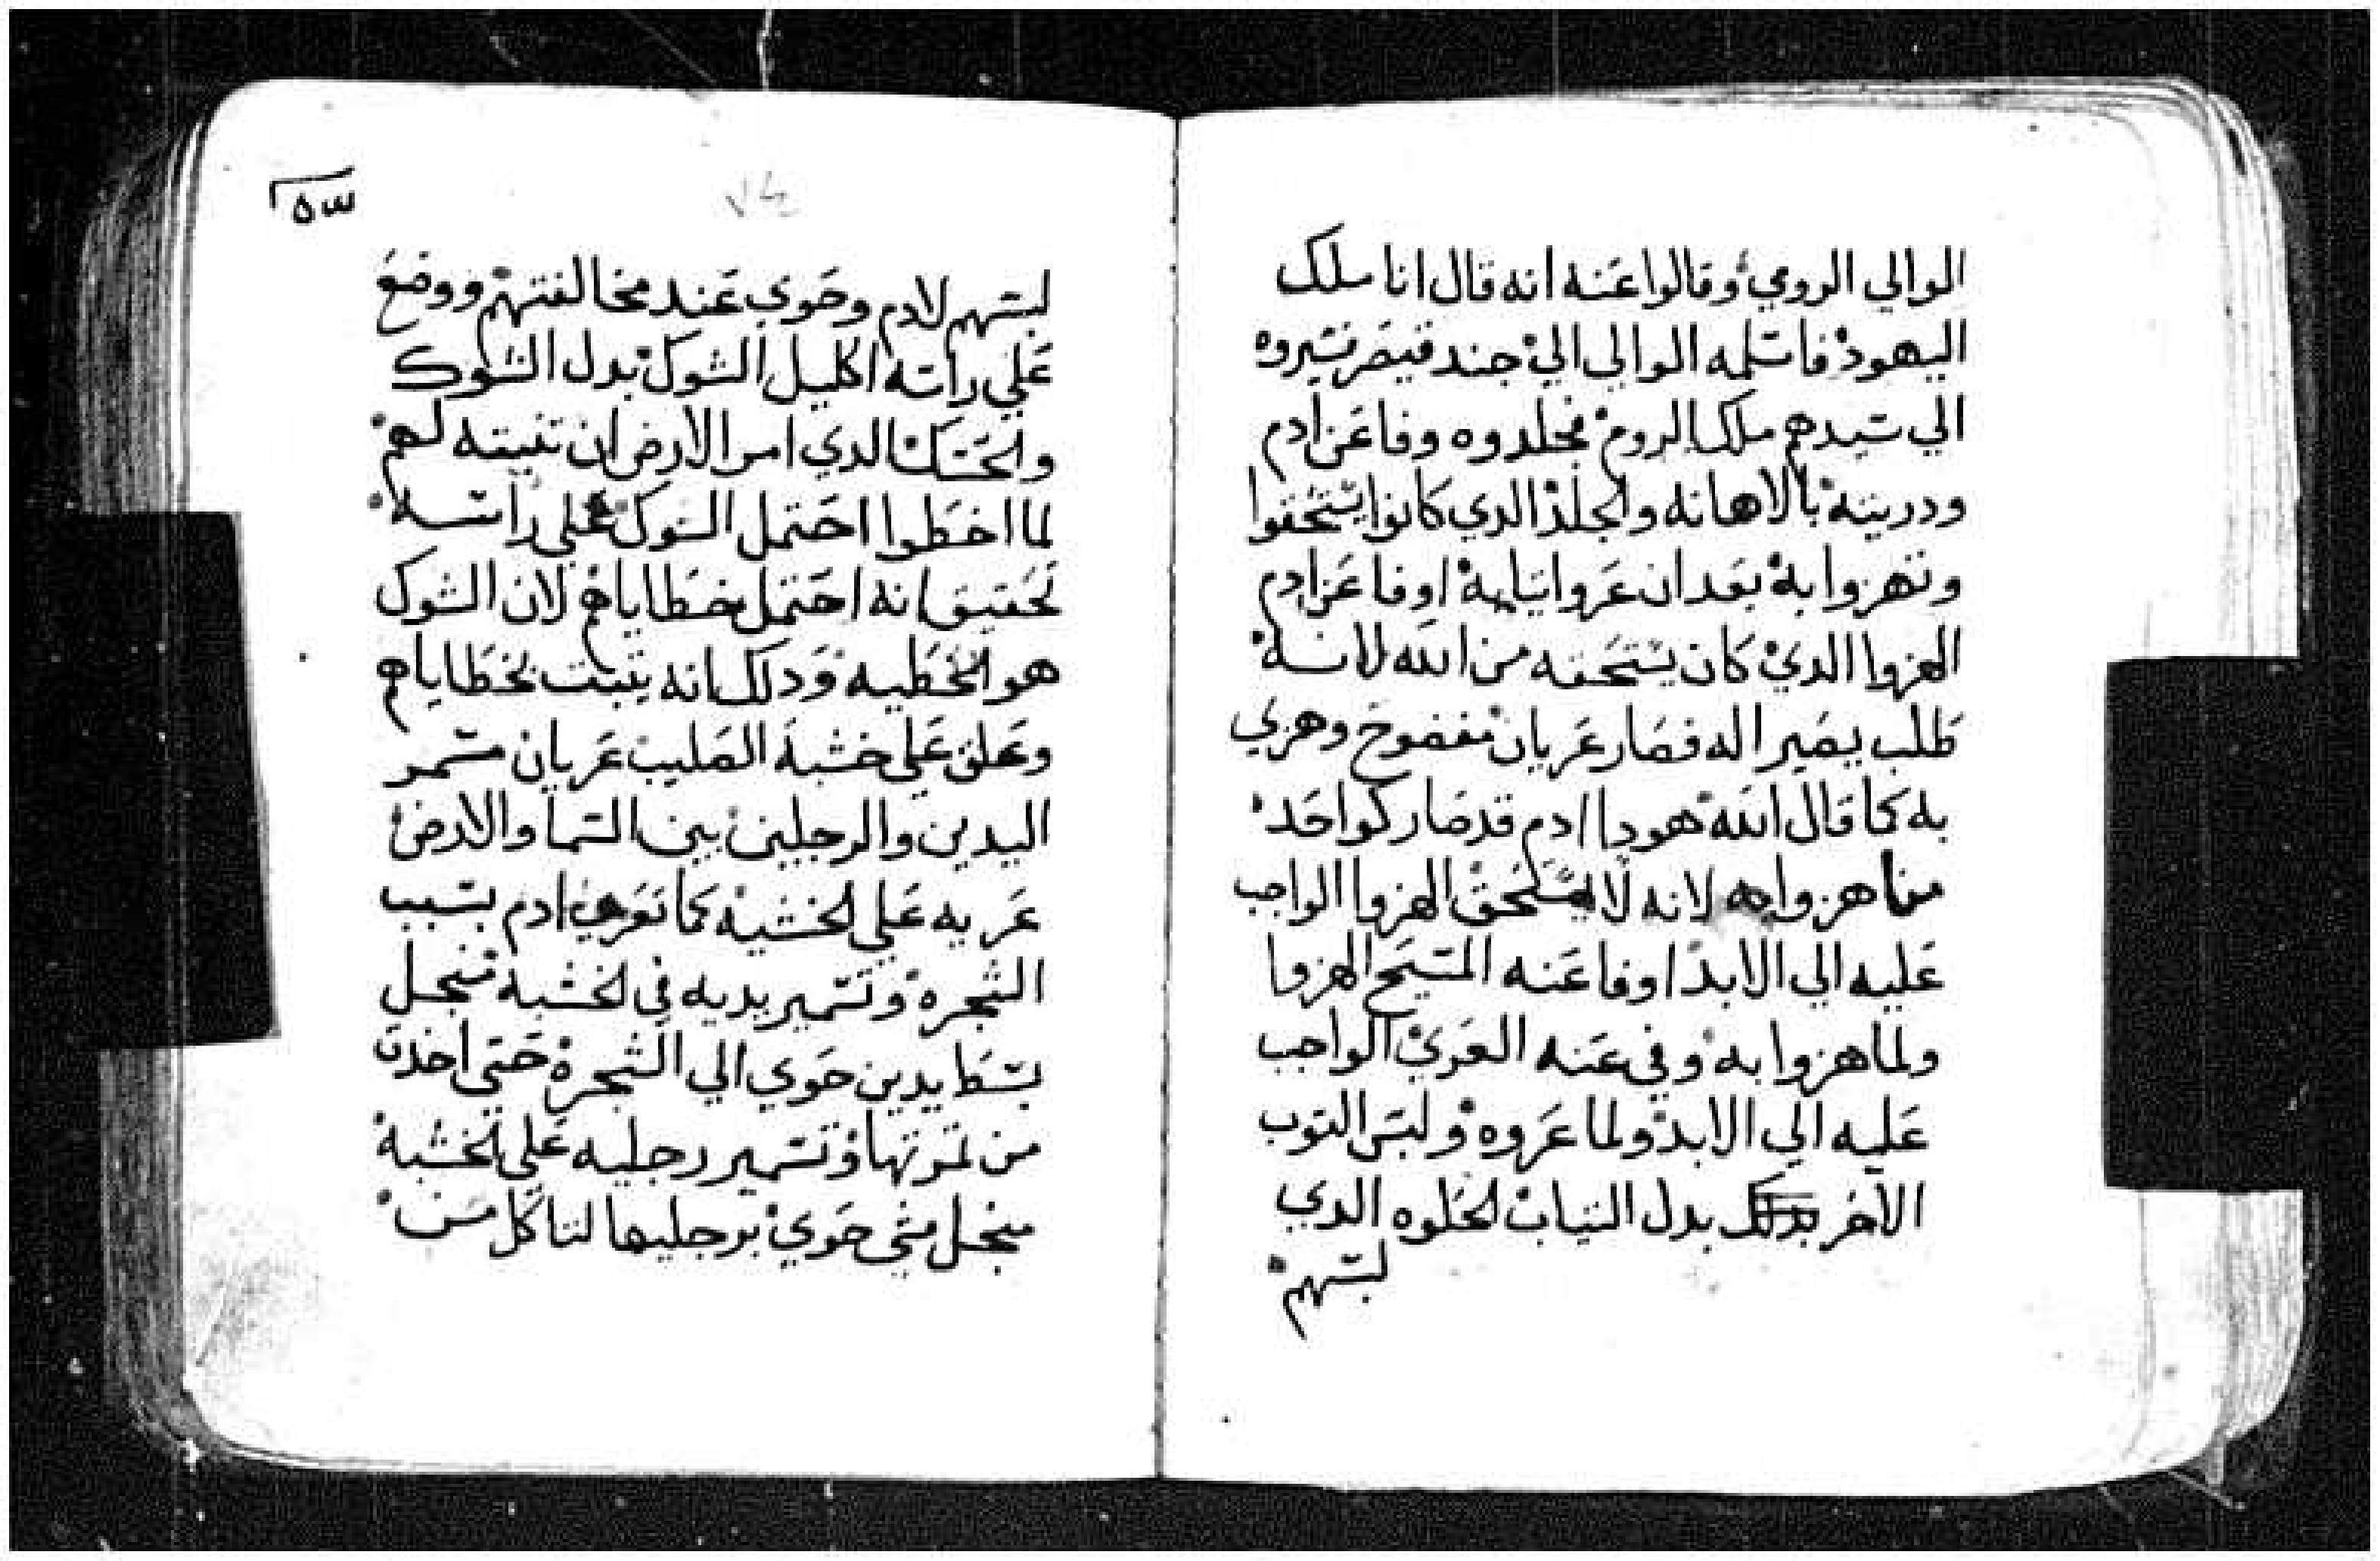 الوالي الرومي وقالوا عنه انه قال انا ملك
اليهود فاسلمه الوالي الي جند قيصر تسيروه
الي سيدهم ملك الروم فجلدوه وفا عن ادم
ودريته بالاهانه والجلد الدي كانوا يستحقوا
وتهزوا به بعد ان عروا تيابه اوفا عن ادم
الهزوا الدي كان يستحقه من الله لانه
طلب يصير اله فصار عريان مفضوح وهزي
به كما قال الله هودا ادم قد صار كواحد
منا هزوا به لانه لا الهزوا الواجب
عليه الي الابد اوفا عنه المسيح الهزوا
ولما هزوا به وفي عنه العري الواجب
عليه الي الابد ولما عروه ولبس التوب
الاخر بدل التياب الحلوه الدي
لبسهم
سه
٧٤
لبسهم لادم وحوي عند مخالفتهم ووضع
علي راسه اكليل الشوك بدل الشوك
والحسك الدي امر الارض ان تنبته لهم
لما اخطوا احتمل الشوك علي راسه
تحقيق انه احتمل خطاياهم لان الشوك
هو الخطيه ودلك انه ينبت بخطاياهم
وعلق علي خشبة الصليب عريان مسمر
اليدين والرجلين بين السما والارض
عريه علي الخشبه كما تعري ادم بسبب
الشجره وتسمير يديه في الخشبه منجل
بسط ايدين حوي الي الشجره حتى اخدت
من تمرتها وتسمير رجليه علي الخشبه
منجل مشي حوي برجليها لتاكل من